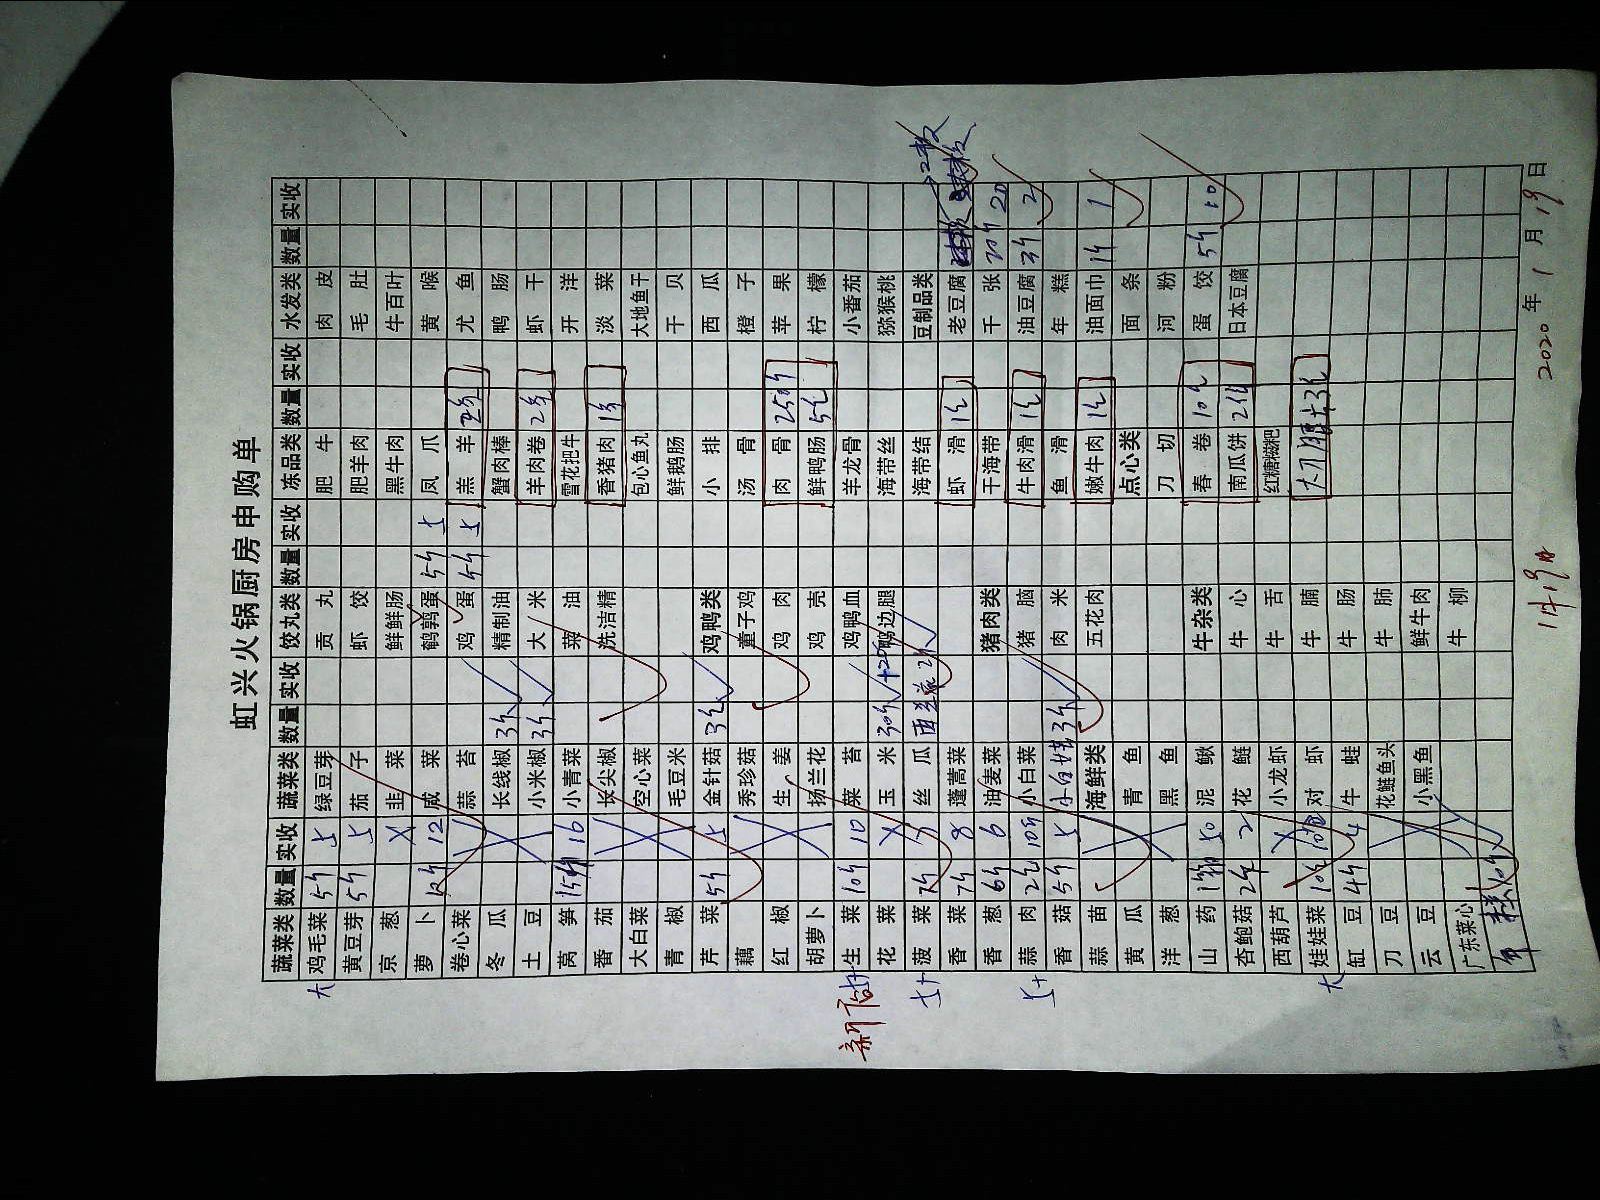 虹兴火锅厨房申购单
蔬菜类 数量 实收 蔬菜类 数量 实收 饺丸类 数量 实收 冻品类 数量 实收 水发类 数量 实收
大 鸡毛菜 5斤 5 绿豆芽 贡丸 肥牛 肉皮
黄豆芽 5斤 5 茄子 虾饺 肥羊肉 毛肚
京葱 韭菜 鲜鲜肠 黑牛肉 牛百叶
萝卜 12斤 12 咸菜 鹌鹑蛋 5斤 5 凤爪 黄喉
卷心菜 蒜苔 鸡蛋 5斤 5 羔羊 2条 尤鱼
冬瓜 长线椒 3斤 精制油 蟹肉棒 鸭肠
土豆 小米椒 3斤 大米 羊肉卷 2条 虾干
莴笋 15斤 16 小青菜 菜油 雪花把牛 开洋
番茄 长尖椒 洗洁精 香猪肉 1条 淡菜
大白菜 空心菜 包心鱼丸 大地鱼干
青椒 毛豆米 鲜鹅肠 干贝
芹菜 5斤 5 金针菇 3包 鸡鸭类 小排 西瓜
藕 秀珍菇 童子鸡 汤骨 橙子
红椒 生姜 鸡肉 肉骨 25斤 苹果
胡萝卜 扬兰花 鸡壳 鲜鸭肠 5包 柠檬
新店 生菜 10斤 10 菜苔 鸡鸭血 羊龙骨 小番茄
花菜 玉米 30斤 鸭边腿 海带丝 猕猴桃
菠菜 7斤 7 丝瓜 西兰花 2斤 海带结 豆制品类
香菜 7斤 8 蓬蒿菜 虾滑 1包 老豆腐 2板
香葱 6斤 6 油麦菜 猪肉类 干海带 千张 20斤 20
蒜肉 2包 10斤 小白菜 猪脑 牛肉滑 1包 油豆腐 3斤 2
香菇 5斤 5 3斤 肉米 鱼滑 年糕
蒜苗 海鲜类 五花肉 嫩牛肉 1包 油面巾 1斤 1
黄瓜 青鱼 点心类 面条
洋葱 黑鱼 刀切 河粉
山药 1箱 50 泥鳅 牛杂类 春卷 10包 蛋饺 5斤 10
杏鲍菇 2斤 2 花鲢 牛心 南瓜饼 2包 日本豆腐
西葫芦 小龙虾 牛舌 红糖糍粑
大 娃娃菜 10包 10包 对虾 牛腩 大刀腰片3包
缸豆 4斤 4 牛蛙 牛肠
刀豆 花鲢鱼头 牛肺
云豆 小黑鱼 鲜牛肉
广东菜心 牛柳
10斤
1月19日
2020年1月19日